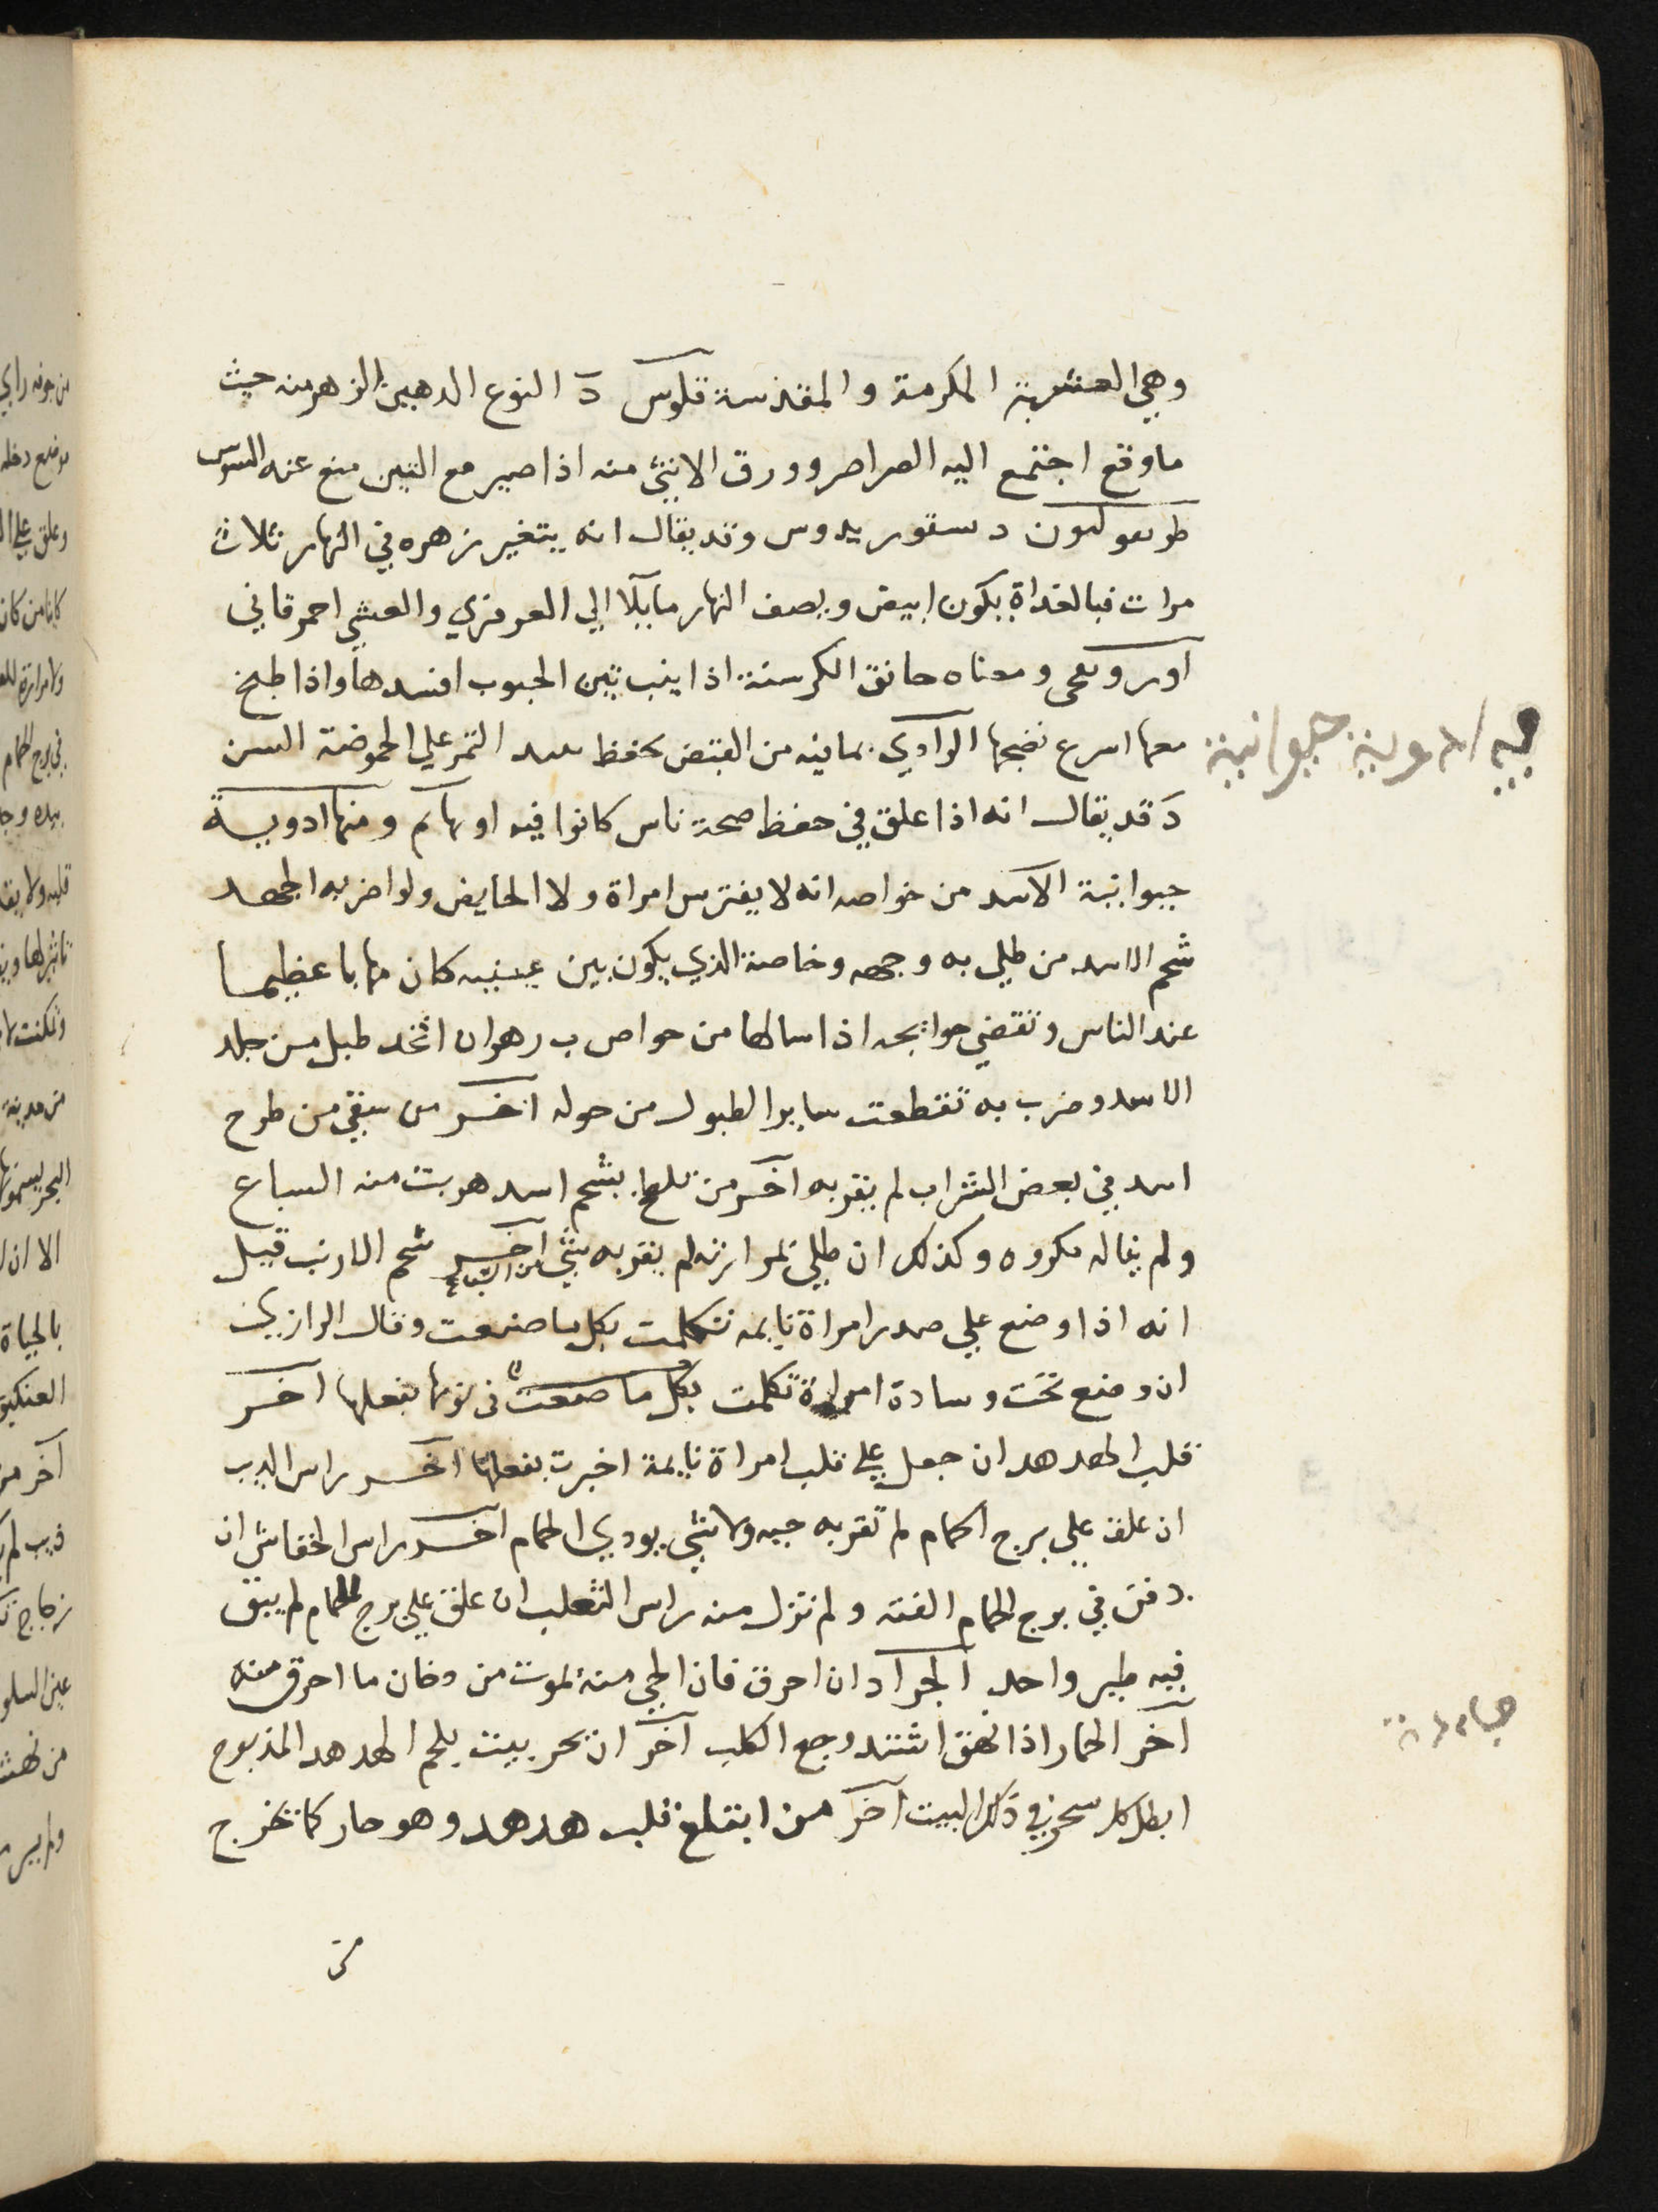 وهي العشبة المكرمة والمقدسة قلوس دَ النوع الدهبين الزهر منه حيث
ماوقع اجتمع اليه الصراصر وورق الانثي منه اذا صير مع التين منع عنه السوس
دستوريدوس وقد يقال انه يتغير زهره في النهار ثلاث
مرات فبالغداة يكون ابيض وبصف النهار مايلا الي الفرفزي والعشي احمر قاني
ومعناه خانق الكرسنة اذا ينب تبين الحبوب افسدها واذا طبخ
معها اسرع نضجها الوادي بمافيه من القبض يحفظ التمر علي الحموضة السن
دَ قد يقال انه اذا علق في حفظ صحة ناس كانوا فيه او بهآيم ومنها ادوية
حيوانية الاسد من خواصه انه لا يفترس امراة ولا الحايض ولو اضر به الجهد
شحم الاسد من طلي به وجهه وخاصة الذي يكون بين عينيه كان مهابا عظيما
عند الناس وتقضي حوايجه اذا سالها من خواص ب رهوان اتخد طبل من جلد
الاسد وضرب به تقطعت ساير الطبول من حوله اخر من سقي من طرح
اسد في بعض الشراب لم يقربه اخر من تلطخ بشحم اسد هربت منه السباع
ولم يناله مكروه وكذلك ان طلي بمرارته لم يقربه شي من السباع اخر شحم الارنب قيل
انه اذا وضع علي صدر امراة نايمه تتكلمت بكل ما صنعت وقال الرازي
ان وضع تحت وسادة امراة تكلمت بكل ما صنعت في نومها بفعلها اخر
قلب الهدهد ان جعل علي قلب امراة نايمة اخبرت بفعلها اخر راس الديب
ان علق علي برج الحمام لم تقربه حيه ولا شي يودي الحمام اخر راس الخفاش ان
دفن في برج الحمام الفته ولم تزل منه راس الثعلب ان علق علي برج الحمام لم يبق
فيه طير واحد الجراد ان احرق فان الحي منه يموت من دخان ما احرق منه
آخر الحمار اذا نهق اشتد وجع الكلب آخر ان بخر بيت بلحم الهدهد المذبوح
ابطل كل سحر في ذلك البيت آخر من ابتلع قلب هدهد وهو حار كما تخرج
من
فيه ادوية حيوانية